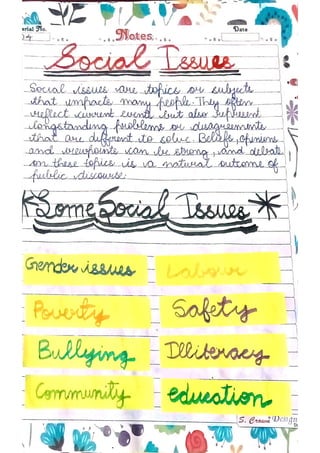 Serial No.
04
Notes
Date
Social Issues
Social issues are topics or subjects
that impacts many people. They often
reflect current events but also represent
longstanding problems or disagreements
that are diffrent to solve. Beliefs, opinions
and viewpoints can be strong, and debate
on these topics is a natural outcome of
public discourse.
Some Social Issues
Gender issues
Labour
Poverty
Safety
Bullying
Illiteracy
Community
education
Design